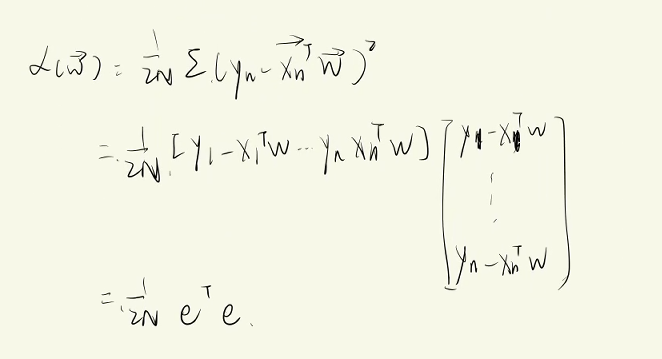 L(w⃗) = 1/2N Σ (yₙ - x⃗ₙᵀ w⃗)²
= 1/2N [y₁ - x₁ᵀw ... yₙ xₙᵀw] [y₁ - x₁ᵀw ⋮ yₙ - xₙᵀw]
= 1/2N eᵀ e.